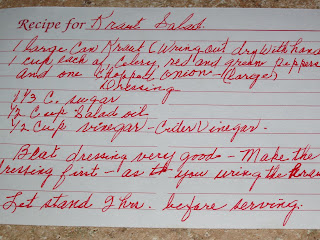 Recipe for Kraut Salad
1 large Can Kraut (Wring out dry with hands
1 cup each of, Celery, red and green Peppers
and one Chopped onion - (Large)
Dressing
1 1/3 C. sugar
1/2 Cup Salad oil
1/2 Cup vinegar - Cider Vinegar.
Beat dressing very good - Make the
dressing first - as you wring the Kraut
Let stand 2 hrs. before serving.